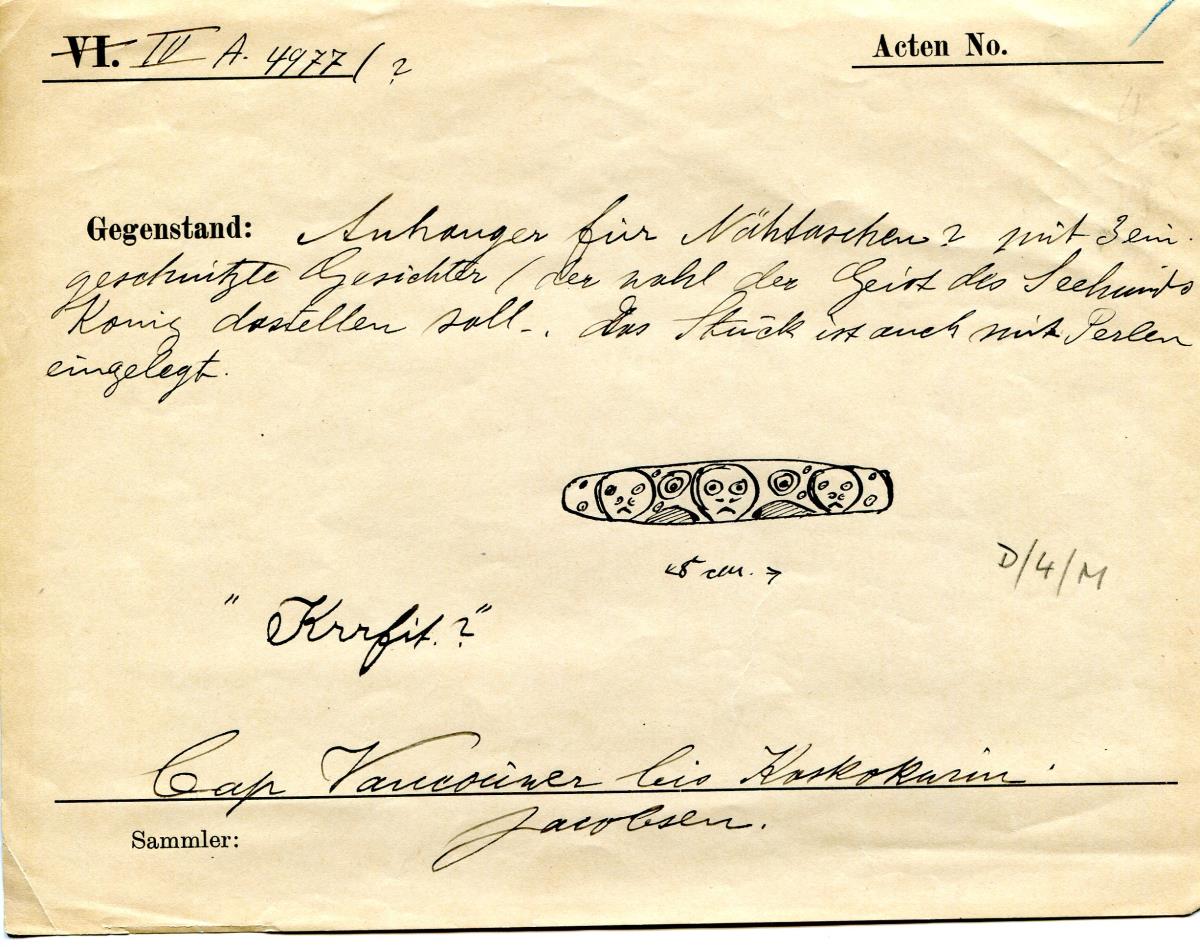 VI. IV A. 4977 ( ?
Acten No.
Gegenstand: Anhanger für Nähtaschen? mit 3 ein-
geschnitzte Gesichter ( der wohl der Geist des Seehunds
König dastellen soll-. Das Stück ist auch mit Perlen
eingelegt.
5 cm.
D/4/M
"Krrfit.?"
Cap Vancouver bis Kuskokwim.
Jacobsen.
Sammler: